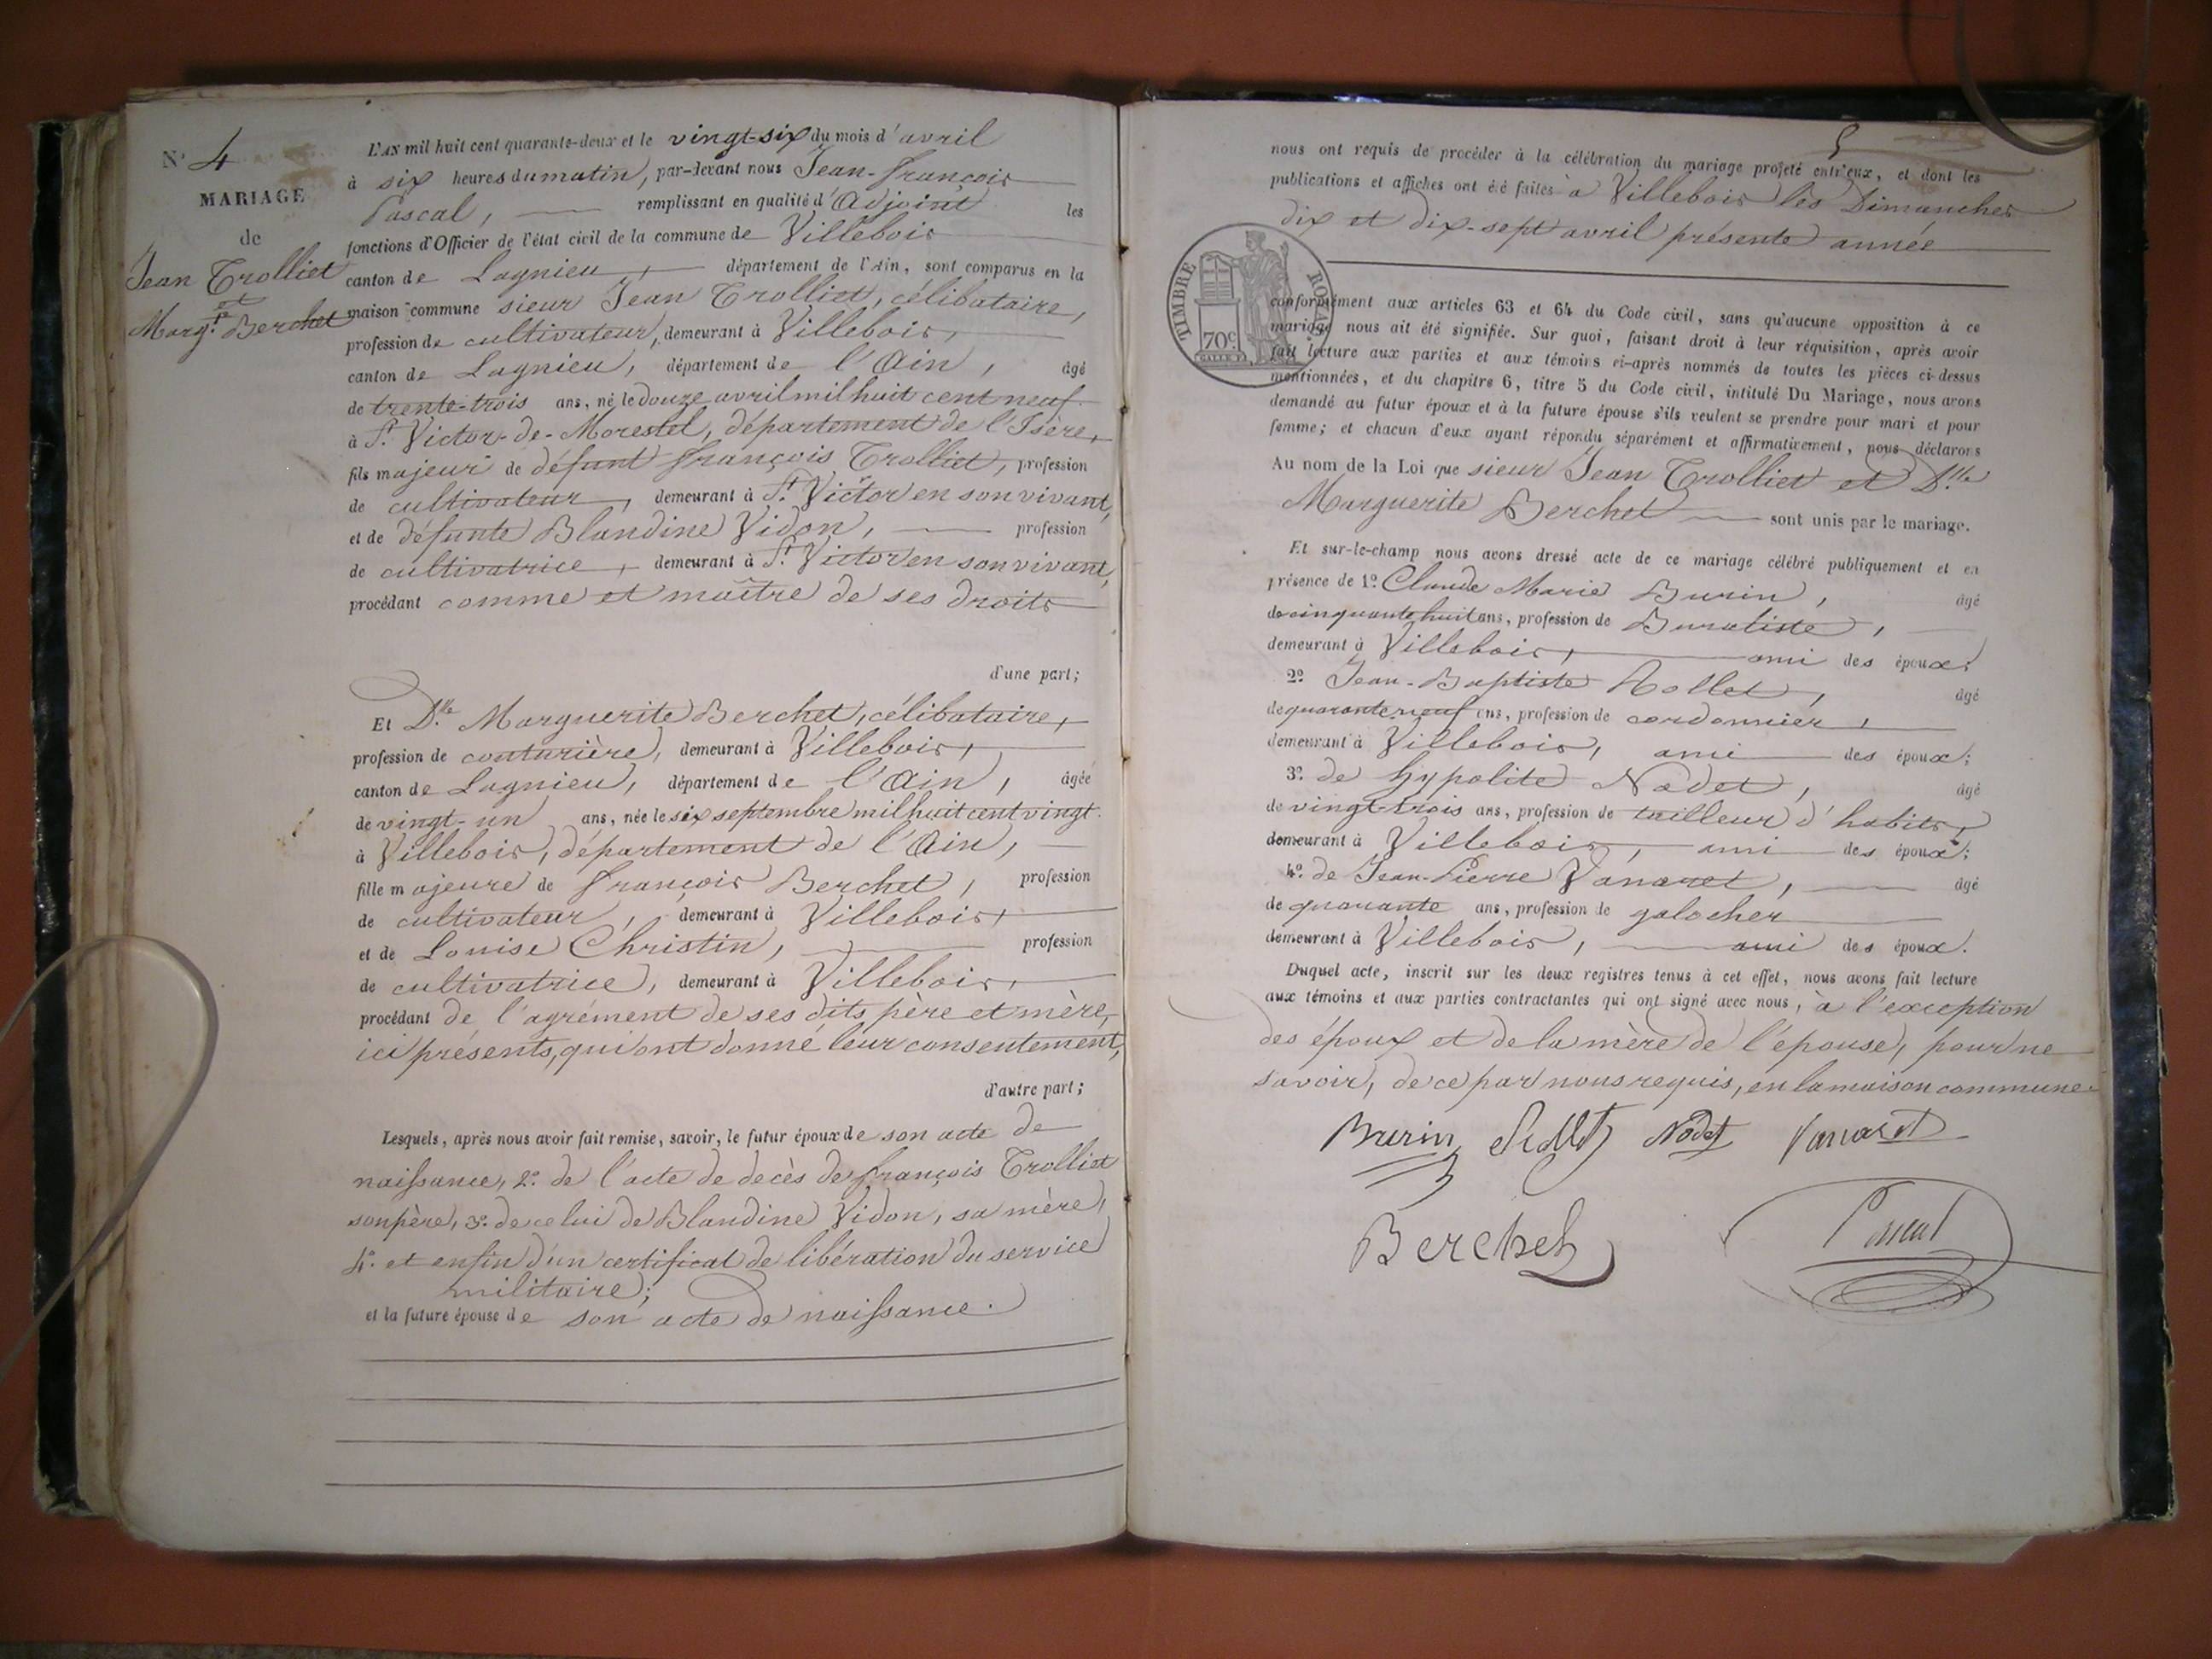 N° 4
MARIAGE
de
Jean Trolliet
et
Marg.te Berchet
L'AN mil huit cent quarante-deux et le vingt-six du mois d'avril
à six heures du matin, par-devant nous Jean-François
Pascal, remplissant en qualité d'Adjoint les
fonctions d'Officier de l'état civil de la commune de Villebois
canton de Lagnieu, département de l'Ain, sont comparus en la
maison commune sieur Jean Trolliet, célibataire,
profession de cultivateur, demeurant à Villebois,
canton de Lagnieu, département de l'Ain, âgé
de trente-trois ans, né le douze avril mil huit cent neuf
à St. Victor-de-Morestel, département de l'Isère,
fils majeur de défunt François Trolliet, profession
de cultivateur, demeurant à St. Victor en son vivant,
et de défunte Blandine Vidon, profession
de cultivatrice, demeurant à St. Victor en son vivant,
procédant comme et maître de ses droits
d'une part;
Et D.lle Marguerite Berchet, célibataire,
profession de couturière, demeurant à Villebois,
canton de Lagnieu, département de l'Ain, âgée
de vingt-un ans, née le six septembre mil huit cent vingt
à Villebois, département de l'Ain,
fille majeure de François Berchet, profession
de cultivateur, demeurant à Villebois,
et de Louise Christin, profession
de cultivatrice, demeurant à Villebois,
procédant de l'agrément de ses dits père et mère,
ici présents, qui ont donné leur consentement,
d'autre part;
Lesquels, après nous avoir fait remise, savoir, le futur époux de son acte de
naissance, 2° de l'acte de decès de François Trolliet
son père, 3° de celui de Blandine Vidon, sa mère,
4° et enfin d'un certificat de libération du service
militaire;
et la future épouse de son acte de naissance.
5
nous ont requis de procéder à la célébration du mariage projeté entr'eux, et dont les
publications et affiches ont été faites à Villebois les Dimanches
dix et dix-sept avril présente année
TIMBRE ROYAL
70c
conformément aux articles 63 et 64 du Code civil, sans qu'aucune opposition à ce
mariage nous ait été signifiée. Sur quoi, faisant droit à leur réquisition, après avoir
fait lecture aux parties et aux témoins ci-après nommés de toutes les pièces ci-dessus
mentionnées, et du chapitre 6, titre 5 du Code civil, intitulé Du Mariage, nous avons
demandé au futur époux et à la future épouse s'ils veulent se prendre pour mari et pour
femme; et chacun d'eux ayant répondu séparément et affirmativement, nous déclarons
Au nom de la Loi que sieur Jean Trolliet et D.lle
Marguerite Berchet sont unis par le mariage.
Et sur-le-champ nous avons dressé acte de ce mariage célébré publiquement et en
présence de 1° Claude Marie Burin, âgé
de cinquante huit ans, profession de Buraliste,
demeurant à Villebois, ami des époux;
2° Jean-Baptiste âgé
de quarante neuf ans, profession de cordonnier,
demeurant à Villebois, ami des époux;
3° de Hypolite Nodet, âgé
de vingt-trois ans, profession de tailleur d'habits,
demeurant à Villebois, ami des époux;
4° de Jean-Pierre Vanaret, âgé
de quarante ans, profession de galocher
demeurant à Villebois, ami des époux.
Duquel acte, inscrit sur les deux registres tenus à cet effet, nous avons fait lecture
aux témoins et aux parties contractantes qui ont signé avec nous, à l'exception
des époux et de la mère de l'épouse, pour ne
savoir, de ce par nous requis, en la maison commune.
Burin Nodet Vanaret
Berchet Pascal